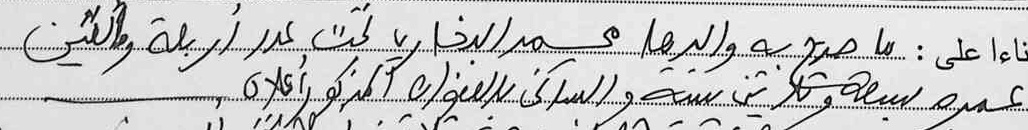 ناءا على : ما صرح به والدها محمد البخاري تحت عدد أربعة وثلاثين
عمره سبعة وثلاثين سنة والساكن بالعنوان المذكور أعلاه